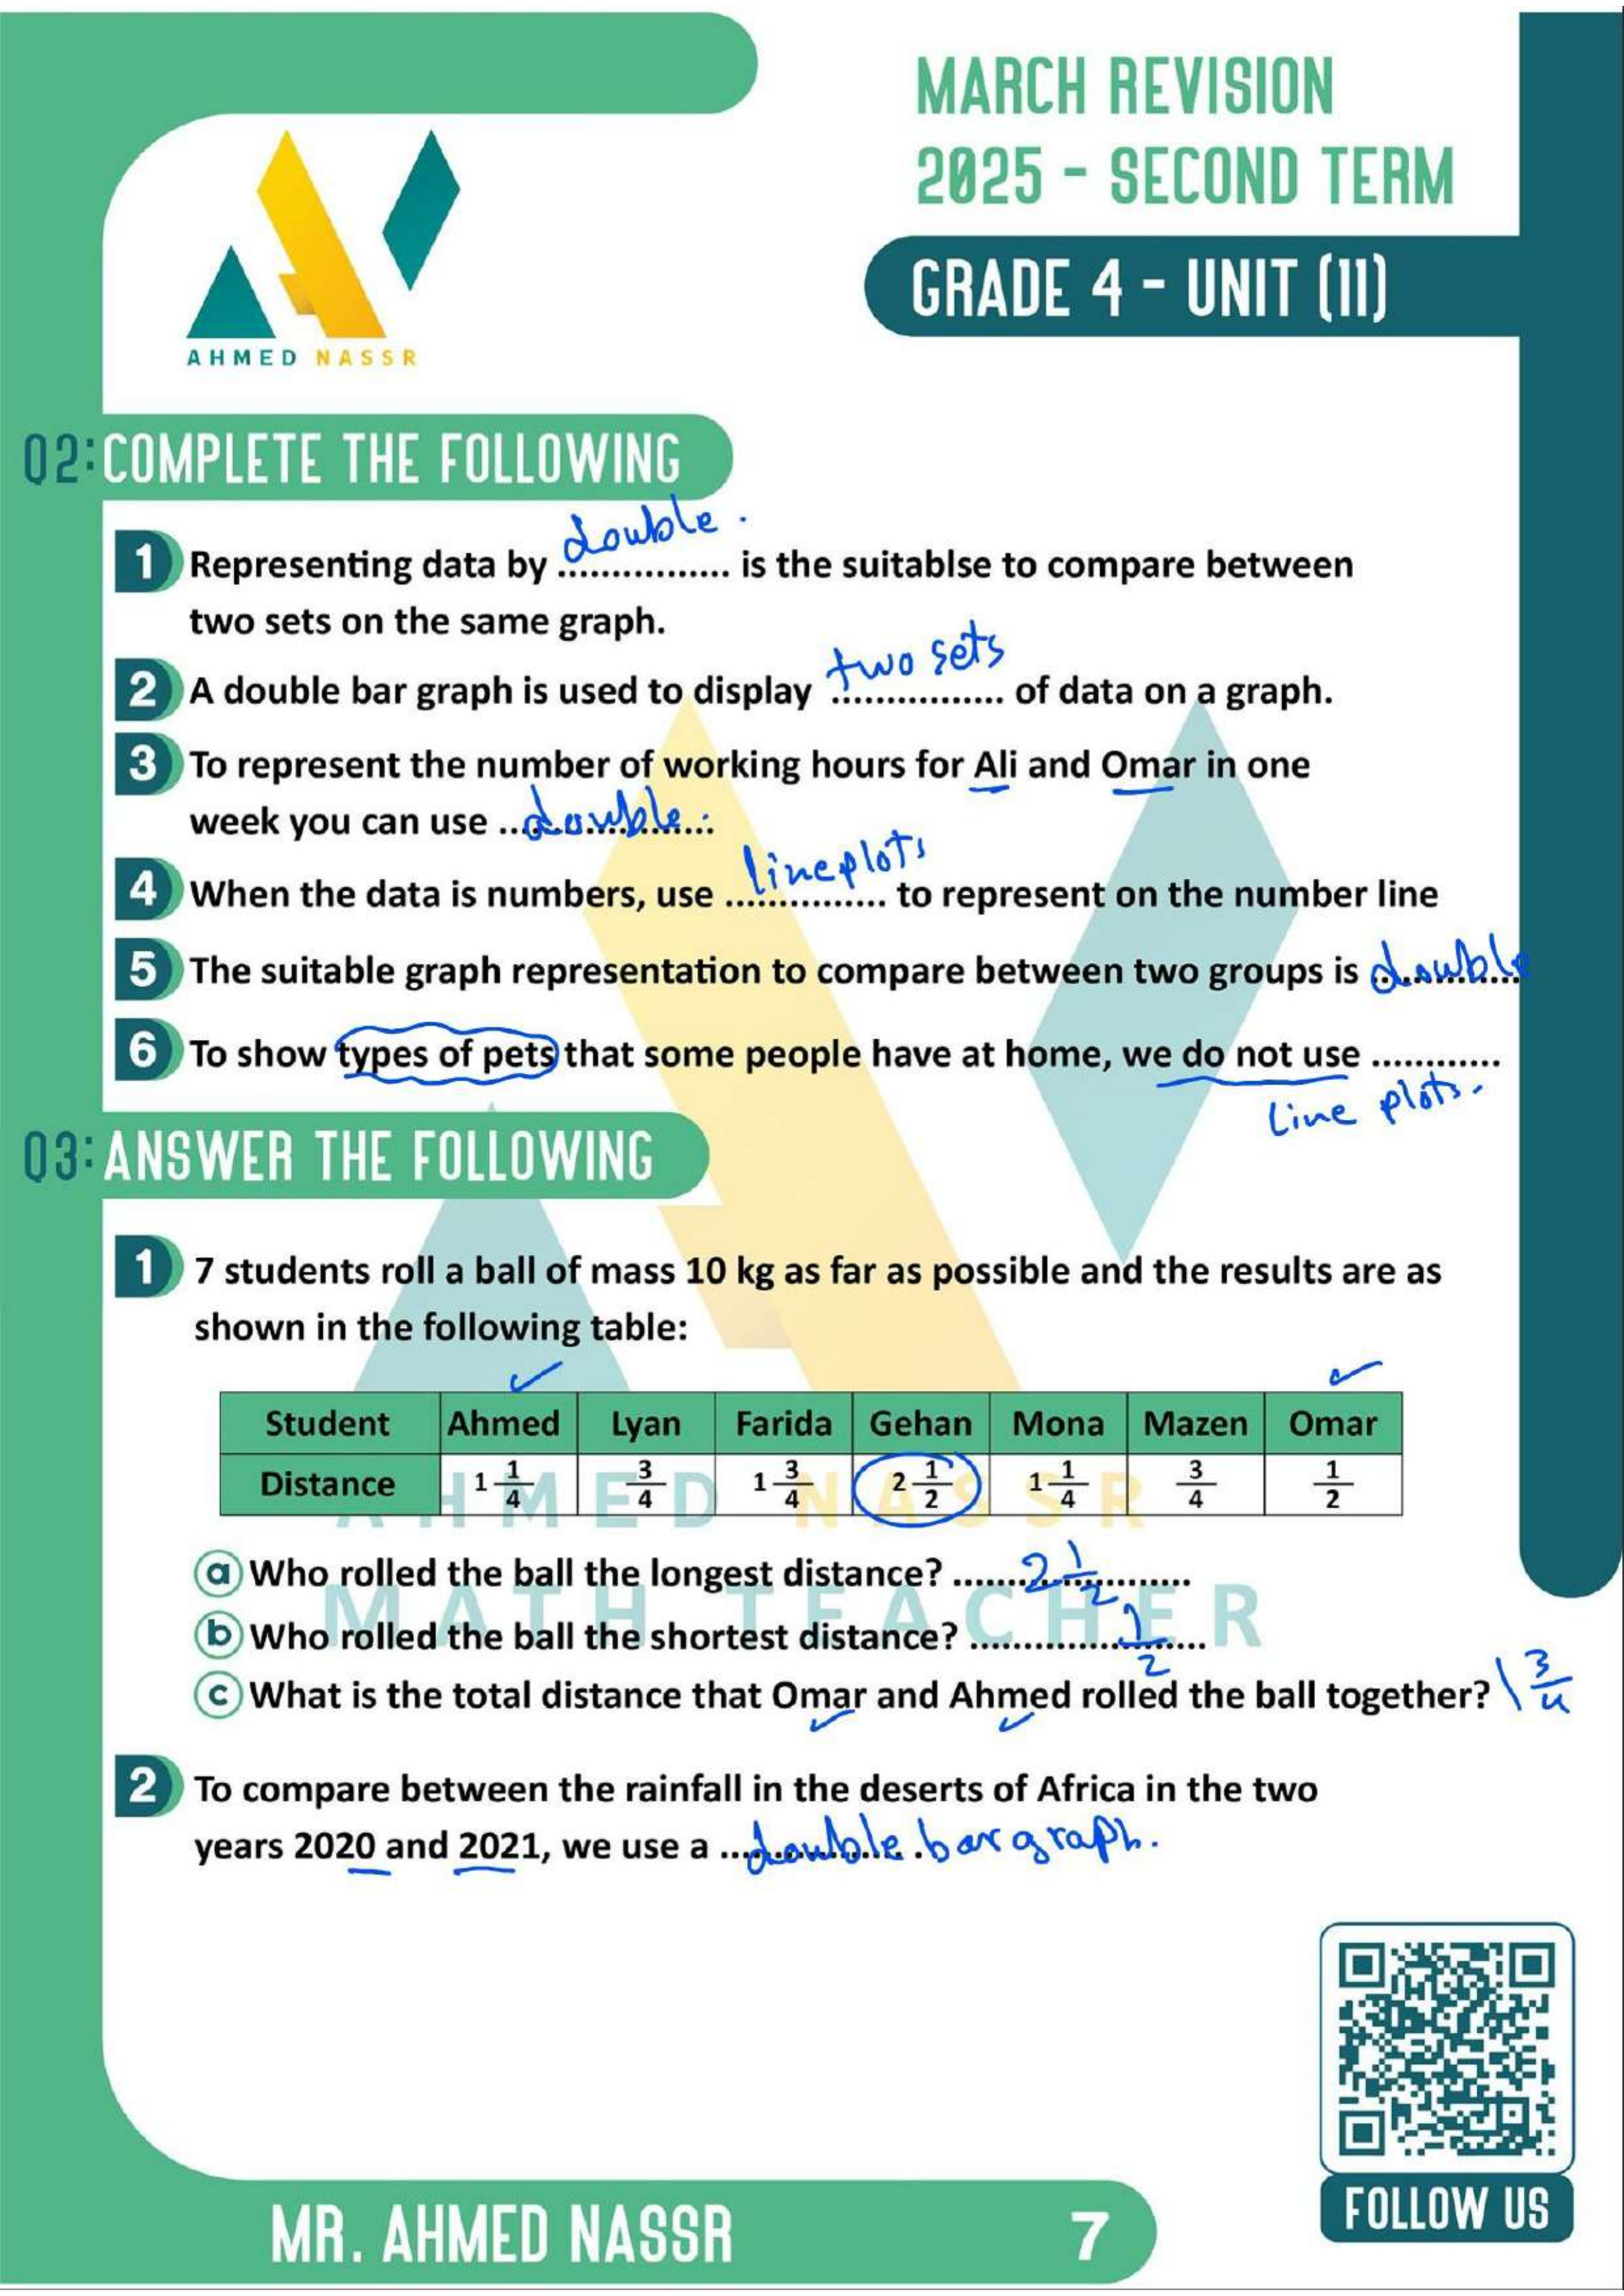 MARCH REVISION
2025 - SECOND TERM
GRADE 4 - UNIT (11)
AHMED NASSR
Q2: COMPLETE THE FOLLOWING
double.
1 Representing data by ................ is the suitablse to compare between
two sets on the same graph.
two sets
2 A double bar graph is used to display ................ of data on a graph.
3 To represent the number of working hours for Ali and Omar in one
week you can use ..double...
line plots
4 When the data is numbers, use ............... to represent on the number line
5 The suitable graph representation to compare between two groups is double
6 To show types of pets that some people have at home, we do not use ............
Line plots.
Q3: ANSWER THE FOLLOWING
1 7 students roll a ball of mass 10 kg as far as possible and the results are as
shown in the following table:
Student Ahmed Lyan Farida Gehan Mona Mazen Omar
Distance 1 1/4 3/4 1 3/4 2 1/2 1 1/4 3/4 1/2
AHMED NASSR
a Who rolled the ball the longest distance? ......2 1/2.......
MATH TEACHER
b Who rolled the ball the shortest distance? ............1/2....
c What is the total distance that Omar and Ahmed rolled the ball together? 1 3/4
2 To compare between the rainfall in the deserts of Africa in the two
years 2020 and 2021, we use a ..double bar graph.
FOLLOW US
MR. AHMED NASSR
7